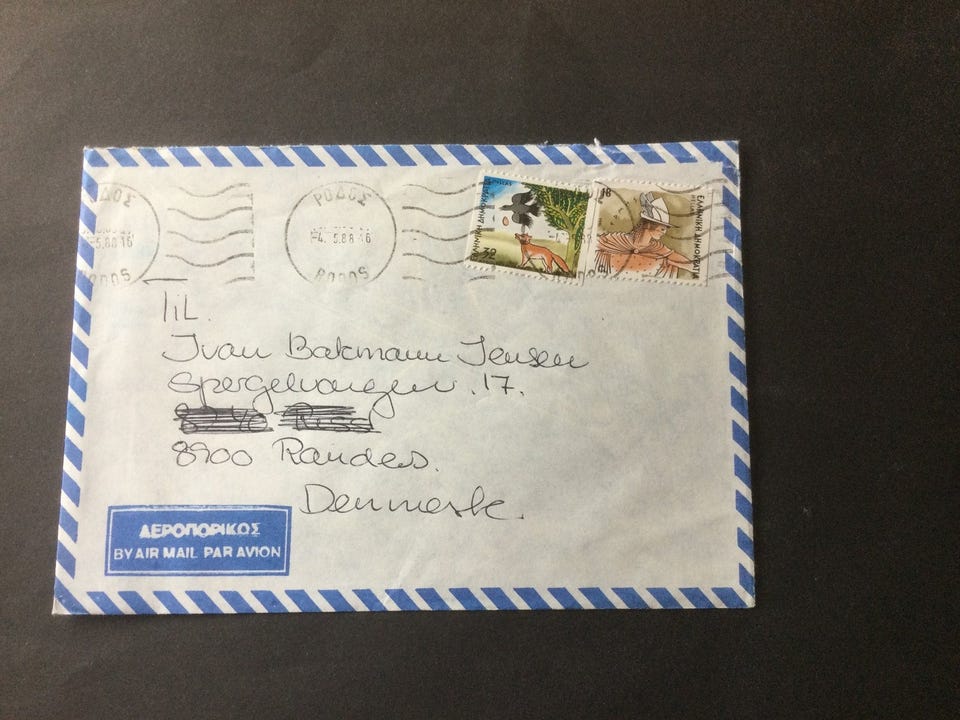 ΔΟΣ
-5.88 16
RODOS
ΡΟΔΟΣ
-4. 5.88 16
RODOS
ΕΛΛΗΝΙΚΗ ΔΗΜΟΚΡΑΤΙΑ
30
ΕΛΛΗΝΙΚΗ ΔΗΜΟΚΡΑΤΙΑ
18
Til.
Ivan Bakmann Jensen
Spergelvangen. 17.
8900 Randes.
Denmark.
ΑΕΡΟΠΟΡΙΚΟΣ
BY AIR MAIL PAR AVION